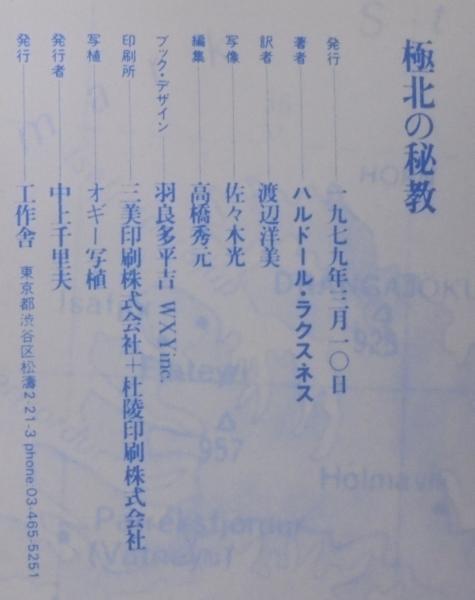 極北の秘教
発行――一九七九年三月一〇日
著者――ハルドール・ラクスネス
訳者――渡辺洋美
写像――佐々木光
編集――高橋秀元
ブック・デザイン――羽良多平吉 WXY inc.
印刷所――三美印刷株式会社+杜陵印刷株式会社
写植――オギー写植
発行者――中上千里夫
発行――工作舎 東京都渋谷区松濤2-21-3 phone.03-465-5251
Isafj
DRANGAJÖKU
925
Flateyri
957
Holmav
Patreksfjordur
(Vatneyri)